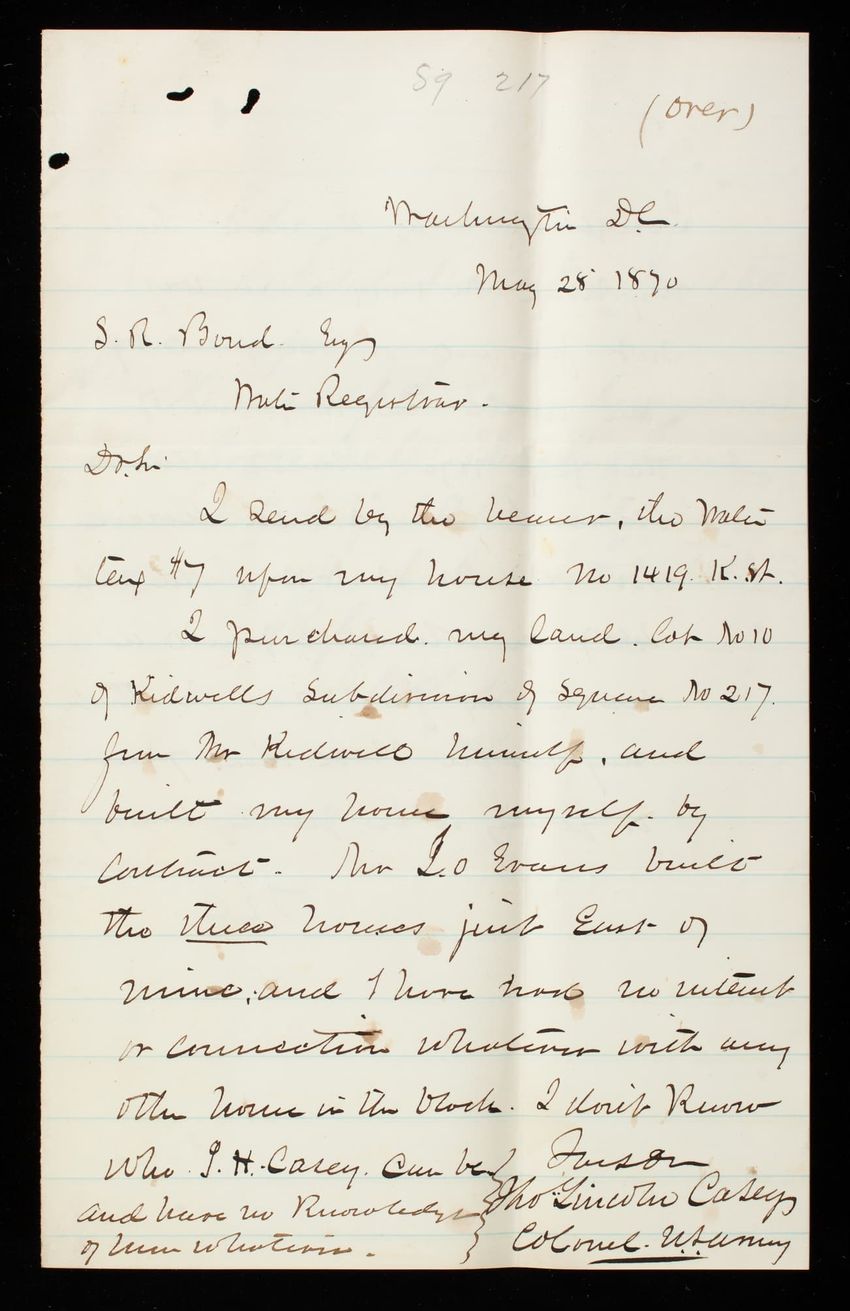 59 217
(over)
Washington DC
May 28 1870
S. R. Bond. Esq
Water Registrar.
Dr. Sir
I send by the bearer, the Water
tax $7 upon my house No 1419. K. St.
I purchased. my land. lot No 10
of Kidwells Subdivision of Square No 217.
from Mr Kidwell himself, and
built my house myself. by
contract. Mr J.O Evans built
the three houses just East of
mine; and I have had no interest
or connection whatever with any
other house in the block. I don't know
who J. H. Casey. can be
and have no knowledge
of him whatever.
Tho Lincoln Casey
Colonel. U.S. Army